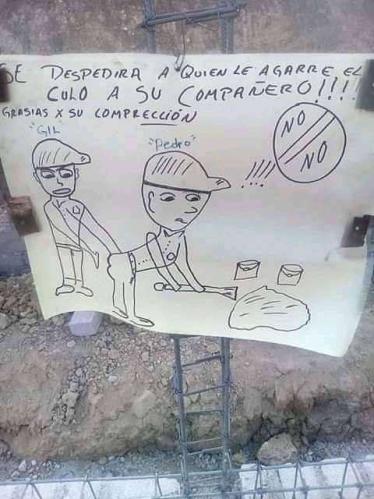 SE DESPEDIRA A QUIEN LE AGARRE EL
CULO A SU COMPAÑERO!!!!
GRASIAS X SU COMPRECCIÓN
"GIL"
"Pedro"
NO
NO